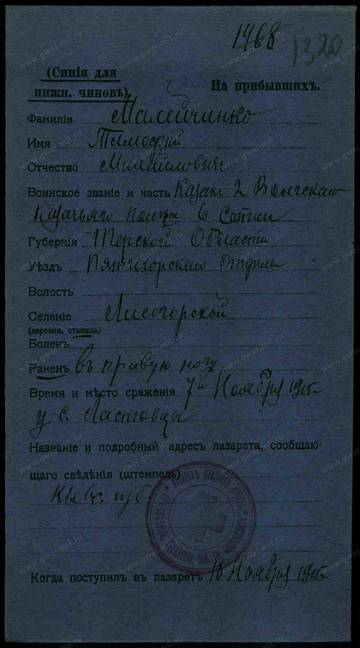 1468
1320
(Синія для
нижн. чиновъ)
На прибывшихъ.
Фамилія Малейчинко
Имя Тимофей
Отчество Михайлович
Воинское званіе и часть Казак 2 Волгскаго
Казачьяго полка 6 Сотни
Губернія Терской Области
Уѣздъ Пятигорскаго Отдѣла
Волость
Селеніе Лисогорской
(деревня, станица)
Боленъ
Раненъ в правую ногу
Время и мѣсто сраженія 7го Ноября 1915г
у с. Ластовцы
Названіе и подробный адресъ лазарета, сообщаю-
щаго свѣдѣнія (штемпель)
Кіев. губ
Когда поступилъ въ лазаретъ 10 Ноября 1915г